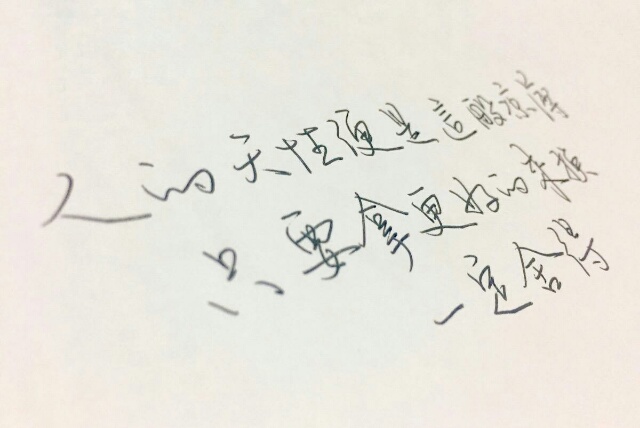 人的天性便是這般凉薄
只要拿更好的来换
一定舍得